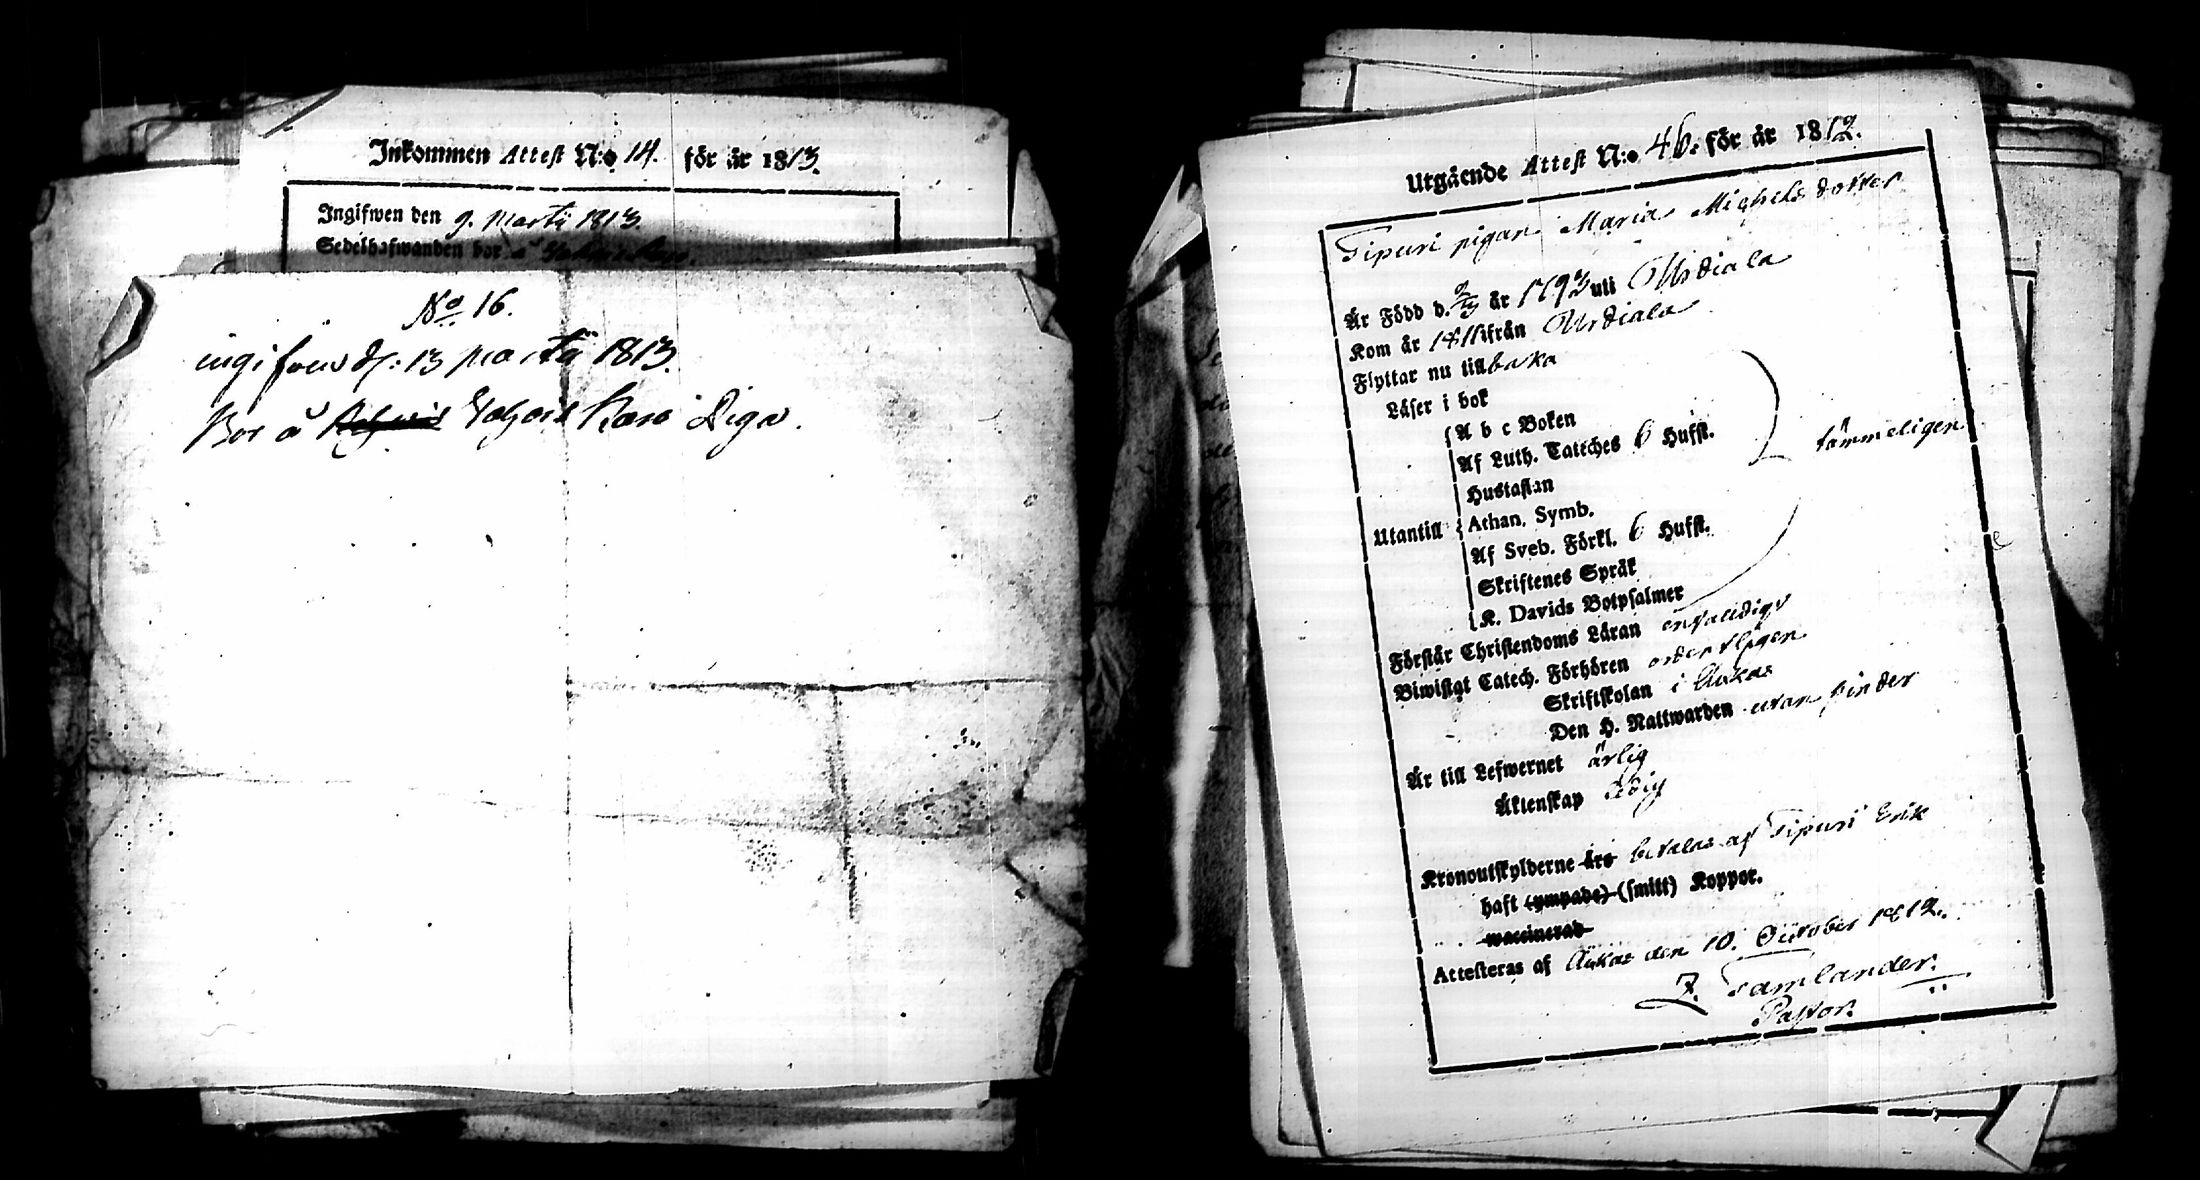 Inkommen Attest N:o 14. för år 1813.
Ingifwen den 9. Martii 1813.
Sedelhafwanden bor å
No 16.
ingifven d: 13 Martii 1813.
Bor å
Utgående Attest N:o 46. för år 1812.
Tipuri pigan Maria Michelsdotter
Är Född d. år 1793 uti Urdiala
Kom år 1811 ifrån Urdiala
Flyttar nu tillbaka
Läser i bok
A b c Boken
Af Luth. Cateches 6 Hufst.
tämmeligen
Hustaflan
Utantill Athan. Symb.
Af Sveb. Förkl. 6 Hufst.
Skriftenes Språk
K. Davids Botpsalmer
Förstår Christendoms Läran enfaldigt
Biwistat Catech. Förhören ordentligen
Skriftskolan i Ackas
Den H. Nattwarden utan hinder
Är till Lefwernet ärlig
Äktenskap ledig
Kronoutskylderne äro betalas af Tipuri Erik
haft (ympade) (smitt) Koppor.
waccinerad
Attesteras af Ackas den 10. October 1812.
J. Tamlander.
Pastor.